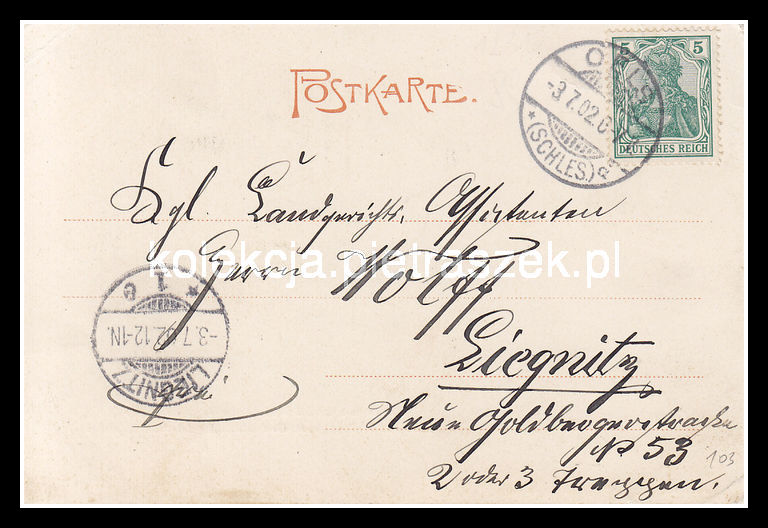 POSTKARTE.
5 5
DEUTSCHES REICH
OELS
-3.7.02.6-7
* (SCHLES.)
Kgl. Landgerichts. Assistenten
Herrn Wolff
kolekcja.pietraszek.pl
* 1 G
-3.7.02.12-1N.
LIEGNITZ
Liegnitz
Neue Goldbergerstrasse
No 53
103
2 oder 3 Treppen.